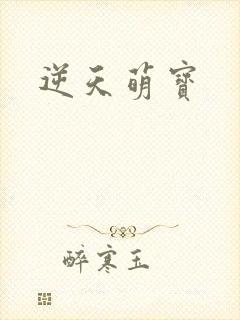 逆天萌寶
醉寒玉